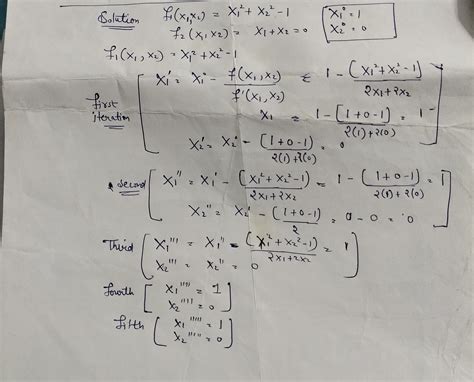 Solution f₁(x₁,x₂) = x₁² + x₂² - 1
f₂(x₁,x₂) = x₁ + x₂ = 0
x₁° = 1
x₂° = 0
f₁(x₁, x₂) = x₁² + x₂² - 1
first iteration
x₁' = x₁° - f(x₁,x₂)/f'(x₁,x₂) = 1 - (x₁² + x₂² - 1)/(2x₁ + 2x₂)
x₁ = 1 - [(1+0-1)/(2(1)+2(0))] = 1
x₂' = x₂° - (1+0-1)/(2(1)+2(0)) = 0
second
x₁'' = x₁' - (x₁² + x₂² - 1)/(2x₁ + 2x₂) = 1 - [(1+0-1)/(2(1)+2(0))] = 1
x₂'' = x₂' - (1+0-1)/2 = 0 - 0 = 0
Thrid
x₁''' = x₁'' - (x₁² + x₂² - 1)/(2x₁ + 2x₂) = 1
x₂''' = x₂'' = 0
fourth
x₁'''' = 1
x₂'''' = 0
fifth
x₁''''' = 1
x₂''''' = 0